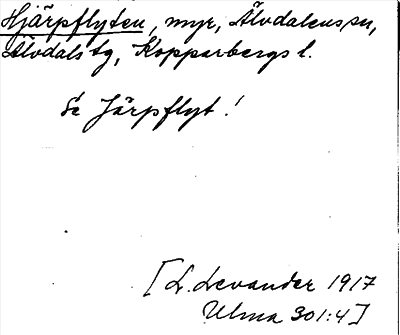 Hjärpflyten, myr, Älvdalens sn,
Älvdals tg, Kopparbergs l.
Se Järpflyt!
[L. Levander 1917
Ulma 301:4]